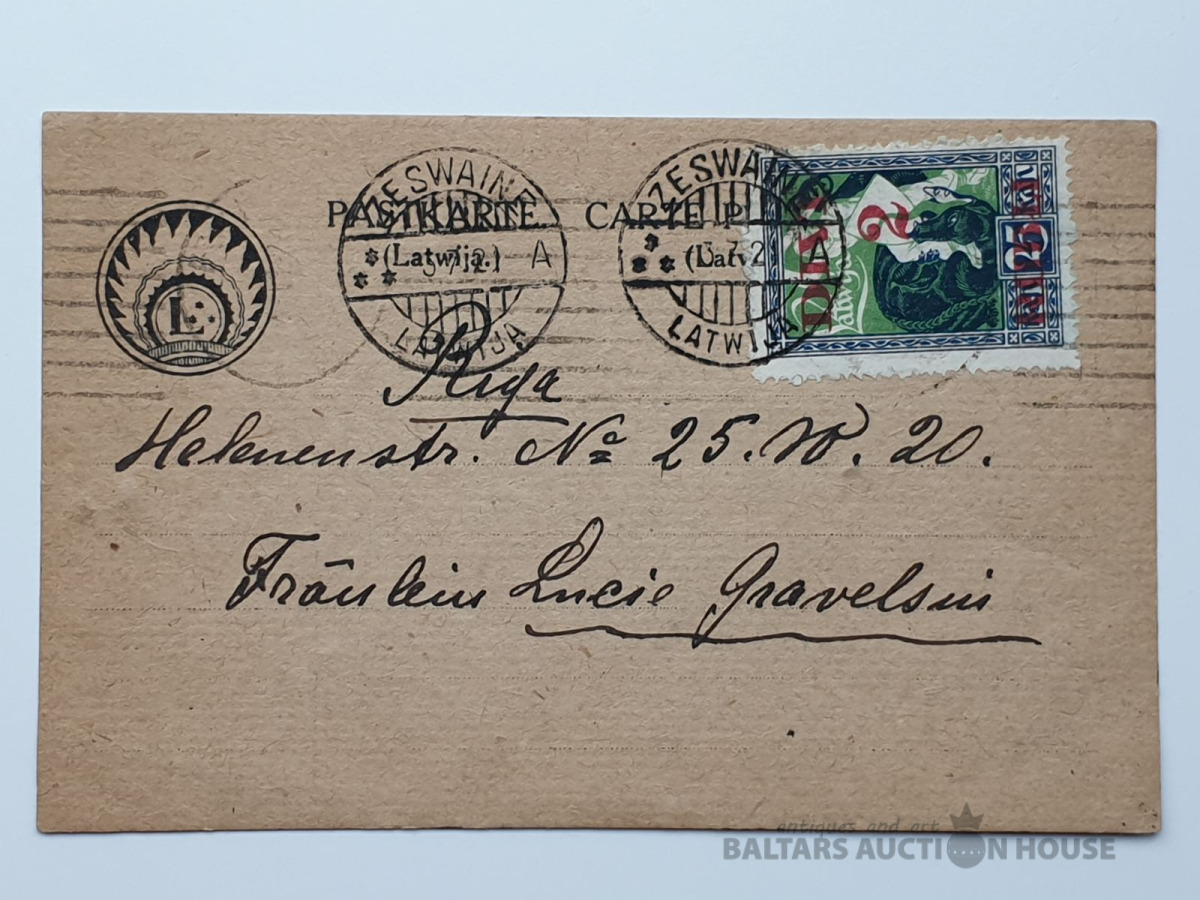 PASTKARTE. CARTE P
(Latwija.) (Latv
ZESWAINE
A
LATWIJA
ZESWAINE
2
A
LATWIJA
L
2
DIWI
25 kap.
Riga
Helenenstr. № 25. W. 20.
Fräulein Lucie Gravelsin
antiques and art
BALTARS AUCTION HOUSE